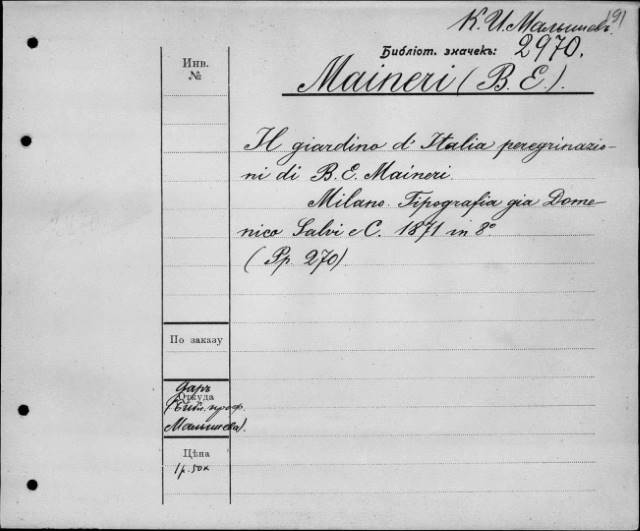 191
К. И. Малышевъ.
Библіот. значекъ: 2970.
Maineri (B. E.).
Инв.
№
Il giardino d' Italia peregrinazio-
ni di B. E. Maineri.
Milano. Tipografia gia Dome-
nico Salvi e C. 1871 in 8°
(Pp. 270)
По заказу
Откуда
Даръ
(Библ. проф.
Малышева).
Цѣна
1 р. 50 к